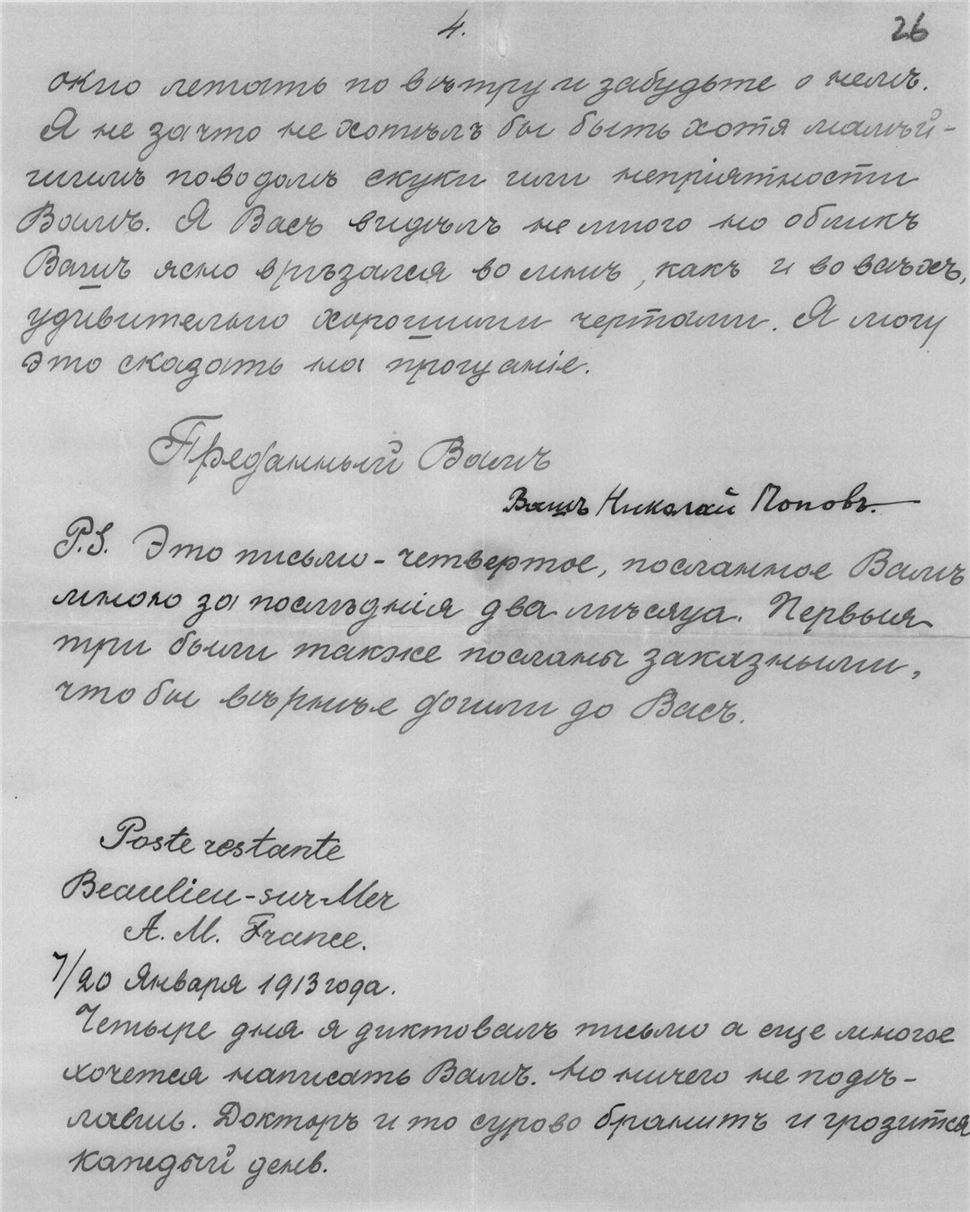 4.
26
окно летать по вѣтру и забудьте о немъ.
Я не за что не хотѣлъ бы быть хотя малѣй-
шимъ поводомъ скуки или непріятности
Вамъ. Я Васъ видѣлъ не много но обликъ
Вашъ ясно врѣзался во мнѣ, какъ и во всѣхъ,
удивительно хорошими чертами. Я могу
это сказать на прощаніе.
Преданный Вамъ
Вашъ Николай Поповъ.
P.S. Это письмо - четвертое, посланное Вамъ
мною за послѣднія два мѣсяца. Первыя
три были также посланы заказными,
что бы вѣрнѣе дошли до Васъ.
Poste restante
Beaulieu-sur-Mer
A. M. France.
7/20 Января 1913 года.
Четыре дня я диктовалъ письмо а еще многое
хочется написать Вамъ. Но ничего не подѣ-
лаешь. Докторъ и то сурово бранитъ и грозится
каждый день.